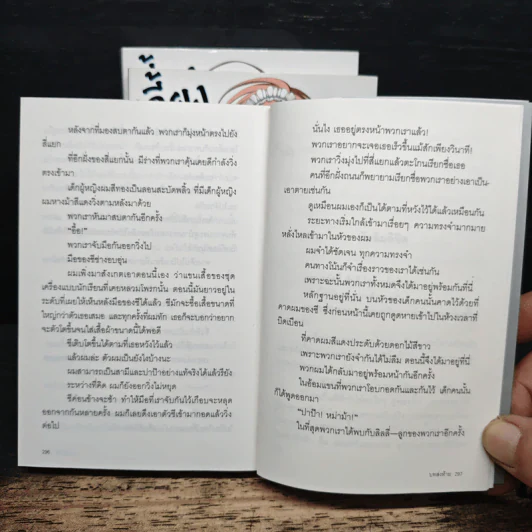 หลังจากที่มองสบตากันแล้ว พวกเราก็มุ่งหน้าตรงไปยัง
สี่แยก
ที่อีกฝั่งของสี่แยกนั้น มีร่างที่พวกเราคุ้นเคยดีกำลังวิ่ง
ตรงเข้ามา
เด็กผู้หญิงผมสีทองเป็นลอนสะบัดพลิ้ว ที่มีเด็กผู้หญิง
ผมหางม้าสีแดงวิ่งตามหลังมาด้วย
พวกเราหันมาสบตากันอีกครั้ง
“อื้อ!”
พวกเราจับมือกันออกวิ่งไป
มือของซีช่างอบอุ่น
ผมเพิ่งมาสังเกตเอาตอนนี้เอง ว่าแขนเสื้อของชุด
เครื่องแบบนักเรียนที่เคยหลวมโพรกนั้น ตอนนี้มันยาวอยู่ใน
ระดับที่เผยให้เห็นหลังมือของซีได้แล้ว ซีมักจะซื้อเสื้อขนาดที่
ใหญ่กว่าตัวเธอเสมอ และทุกครั้งที่ผมทัก เธอก็จะบอกว่าอยาก
จะตัวโตขึ้นจนใส่เสื้อผ้าขนาดนี้ได้พอดี
ซีเติบโตขึ้นได้ตามที่เธอหวังไว้แล้ว
แล้วผมล่ะ ตัวผมเป็นยังไงบ้างนะ
ผมสามารถเป็นสามีและปาป๊าอย่างแท้จริงได้แล้วรึยัง
ระหว่างที่คิด ผมก็ยังออกวิ่งไม่หยุด
ซีค่อนข้างจะช้า ทำให้มือที่เราจับกันไว้เกือบจะหลุด
ออกจากกันหลายครั้ง ผมก็เลยดึงเอาตัวซีเข้ามากอดแล้ววิ่ง
ต่อไป
นั่นไง เธออยู่ตรงหน้าพวกเราแล้ว!
พวกเราอยากจะเจอเธอเร็วขึ้นแม้สักเพียงวินาที!
พวกเราวิ่งมุ่งไปที่สี่แยกแล้วตะโกนเรียกชื่อเธอ
คนที่อีกฝั่งถนนก็พยายามเรียกชื่อพวกเราอย่างเอาเป็น-
เอาตายเช่นกัน
ดูเหมือนผมเองก็เป็นได้ตามที่หวังไว้ได้แล้วเหมือนกัน
ระยะทางเริ่มใกล้เข้ามาเรื่อยๆ ความทรงจำมากมาย
หลั่งไหลเข้ามาในหัวของผม
ผมจำได้ชัดเจน ทุกความทรงจำ
คนทางโน้นก็จำเรื่องราวของเราได้เช่นกัน
เพราะฉะนั้นพวกเราทั้งหมดจึงได้มาอยู่พร้อมกันที่นี่
หลักฐานอยู่ที่นั่น บนหัวของเด็กคนนั้นคาดไว้ด้วยที่
คาดผมของซี ซึ่งก่อนหน้านี้เคยถูกดูดหายเข้าไปในห้วงเวลาที่
บิดเบือน
ที่คาดผมสีแดงประดับด้วยดอกไม้สีขาว
เพราะพวกเรายังจำกันได้ไม่ลืม ตอนนี้จึงได้มาอยู่ที่นี่
พวกผมได้กลับมาอยู่พร้อมหน้ากันอีกครั้ง
ในอ้อมแขนที่พวกเราโอบกอดกันและกันไว้ เด็กคนนั้น
ก็ได้พูดออกมา
“ปาป๊า! หม่าม้า!”
ในที่สุดพวกเราก็ได้พบกับลิลลี่—ลูกของพวกเราอีกครั้ง